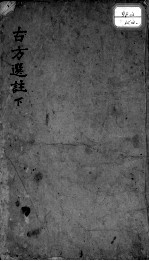 古方選註 下